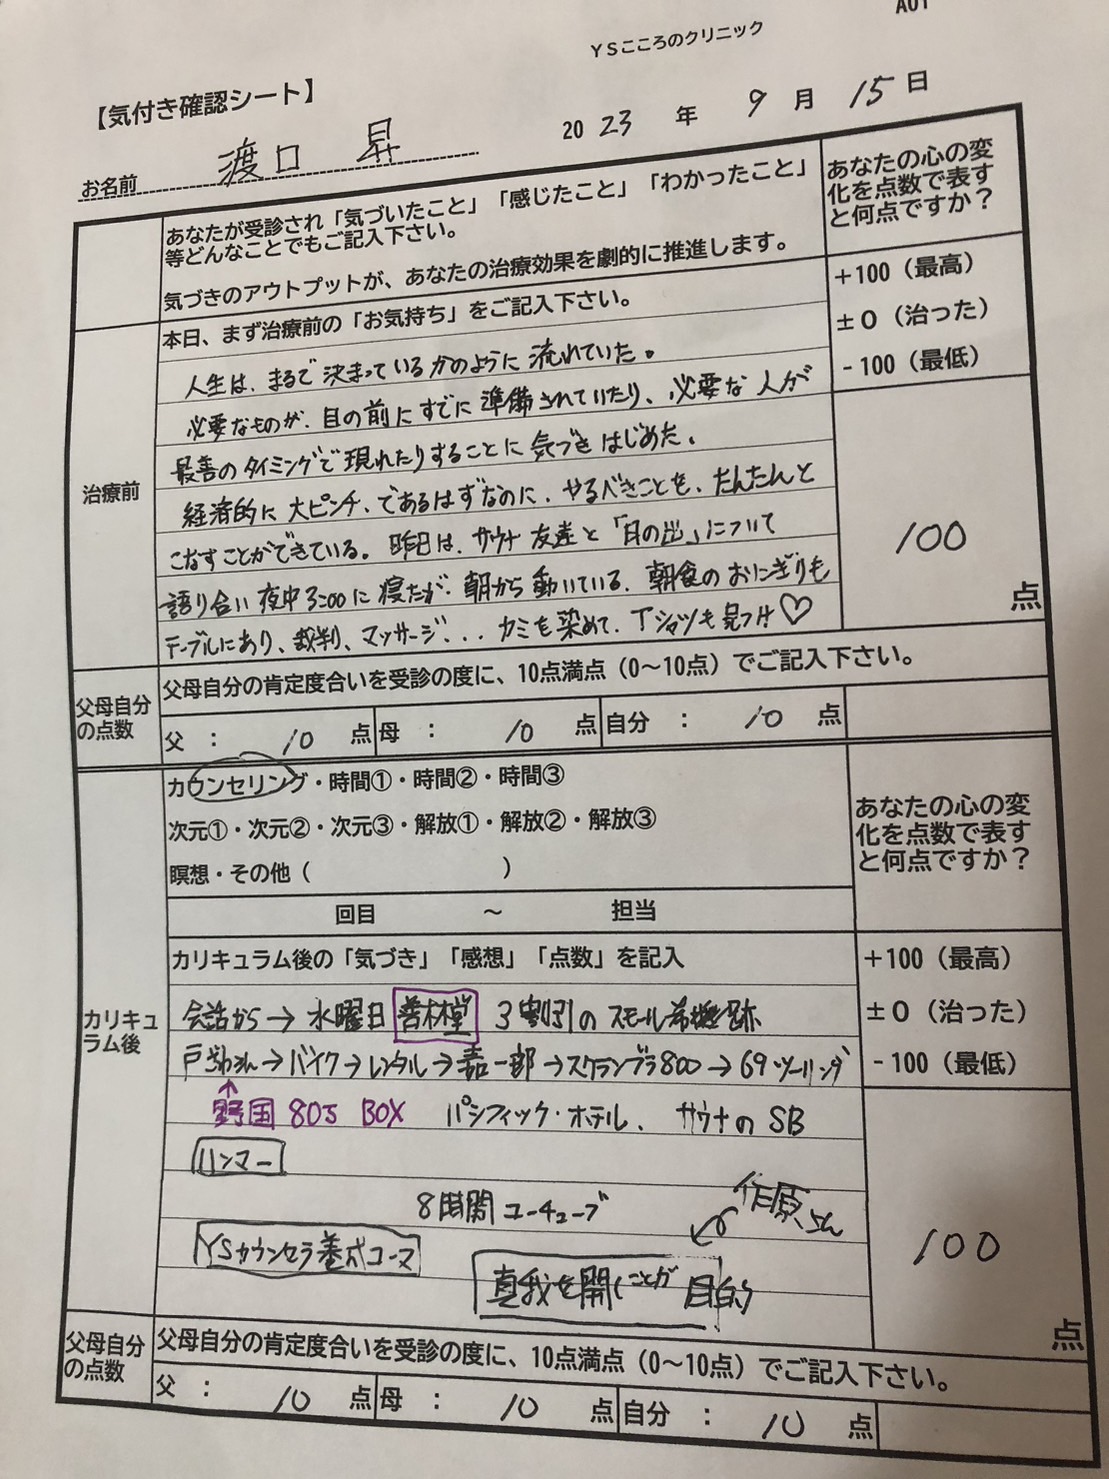 A01
YSこころのクリニック
【気付き確認シート】
2023年 9月 15日
お名前 渡口 昇
あなたが受診され「気づいたこと」「感じたこと」「わかったこと」
等どんなことでもご記入下さい。
気づきのアウトプットが、あなたの治療効果を劇的に推進します。
あなたの心の変
化を点数で表す
と何点ですか？
本日、まず治療前の「お気持ち」をご記入下さい。
+100（最高）
±0（治った）
-100（最低）
治療前
人生は、まるで決まっているかのように流れていた。
必要なものが、目の前にすでに準備されていたり、必要な人が
最善のタイミングで現れたりすることに気づきはじめた。
経済的に大ピンチ、であるはずなのに、やるべきことを、たんたんと
こなすことができている。昨日は、サウナ友達と「日の出」について
語り合い夜中3:00に寝たが、朝から動いている、朝食のおにぎりも
テーブルにあり、裁判、マッサージ...カミを染めて、Tシャツも見つけ♡
100
点
父母自分
の点数
父母自分の肯定度合いを受診の度に、10点満点（0～10点）でご記入下さい。
父 ： 10 点 母 ： 10 点 自分 ： 10 点
カウンセリング・時間①・時間②・時間③
次元①・次元②・次元③・解放①・解放②・解放③
瞑想・その他（ ）
回目 ～ 担当
あなたの心の変
化を点数で表す
と何点ですか？
カリキュ
ラム後
カリキュラム後の「気づき」「感想」「点数」を記入
+100（最高）
±0（治った）
-100（最低）
会話から→水曜日 3割引のスモール
→バイク→レンタル→嘉一郎→スクランブラ800→69ツーリング
野国 805 BOX パシフィック・ホテル、サウナのSB
ハンマー
8時間ユーチューブ
作原さん
YSカウンセラ養成コース
真我を開くことが目的
100
点
父母自分
の点数
父母自分の肯定度合いを受診の度に、10点満点（0～10点）でご記入下さい。
父 ： 10 点 母 ： 10 点 自分 ： 10 点